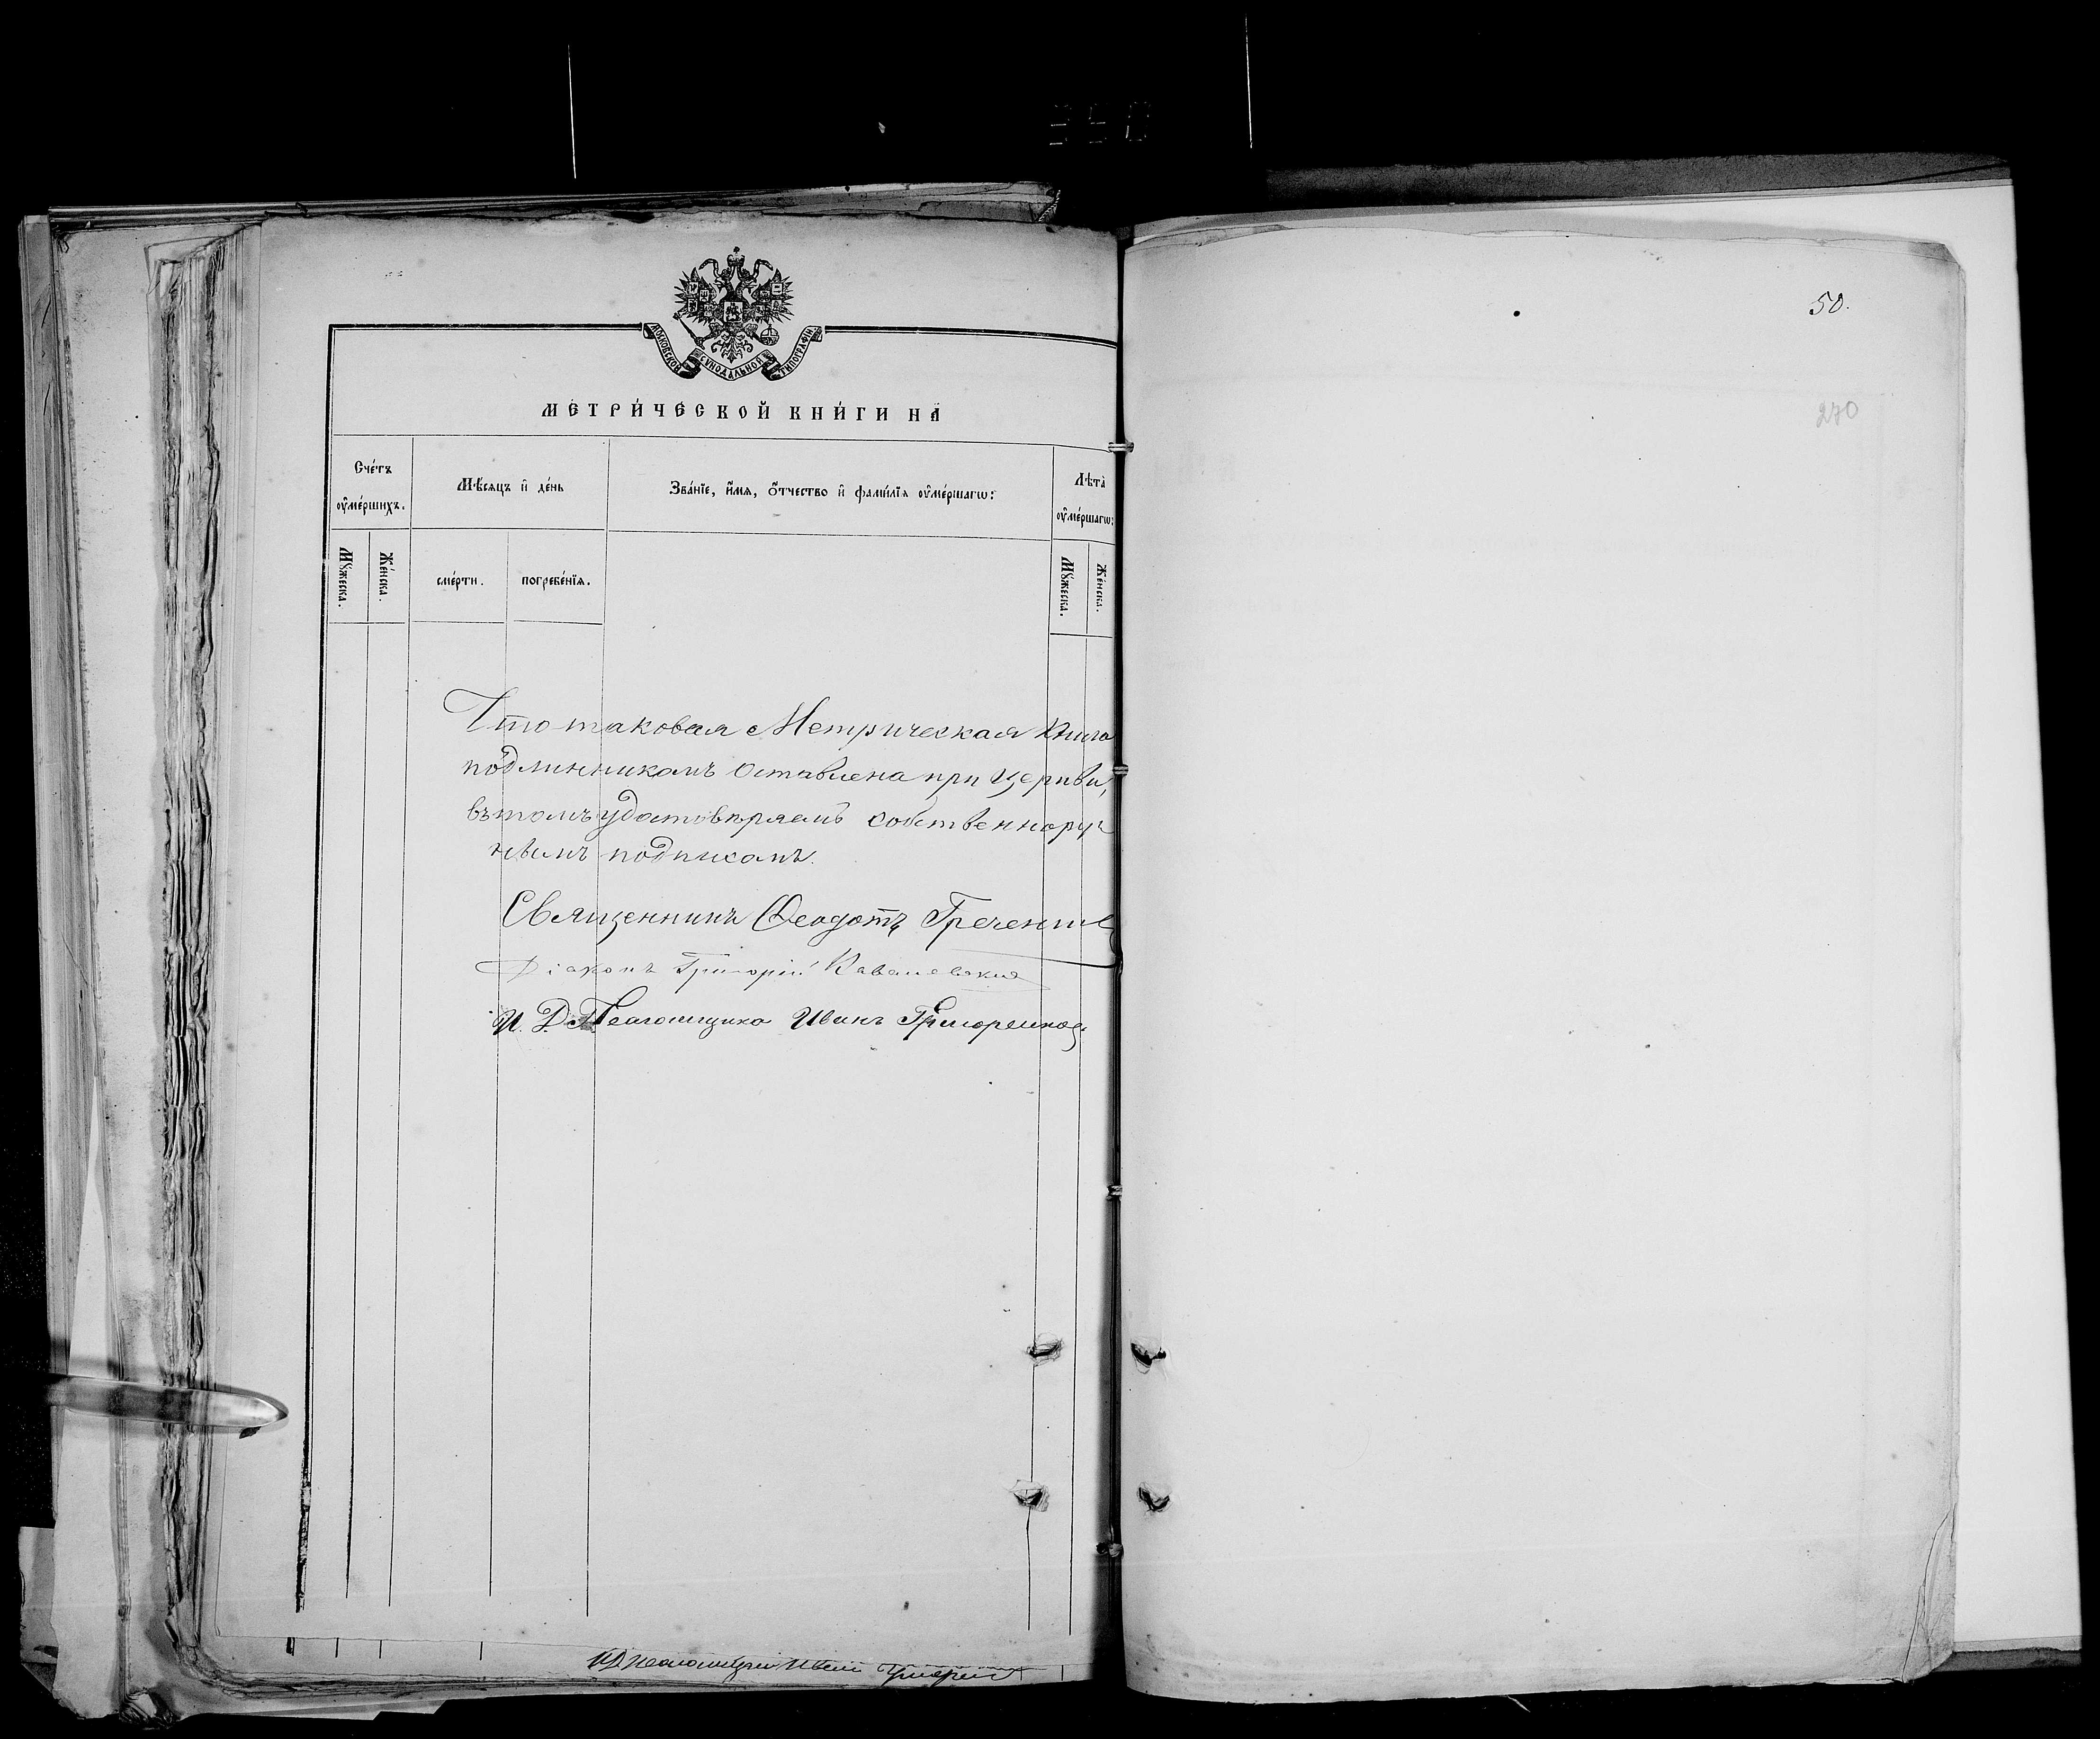 350
МОСКОВСКОЙ СѴНОДАЛЬНОЙ ТИПОГРАФІИ
МЕТРИ́ЧЕСКОЙ КНИ́ГИ НА
Сче́тъ оу҆ме́ршихъ.
Мѣ́сяцъ и҆ де́нь
Зва́нїе, и҆́мѧ, ѻ҆́тчество и҆ фами́лїѧ оу҆ме́ршагѡ:
Лѣ́та оу҆ме́ршагѡ:
Мꙋ́жеска.
Же́нска.
сме́рти.
погребе́нїѧ.
Мꙋ́жеска.
Же́нска.
Что таковая Метрическая Книга
подлинникомъ оставлена при церкви,
въ томъ удостовѣряемъ собственнору
нымъ подписомъ.
Священникъ Ѳеодотъ
Діаконъ Григорій
И. Д. Псаломщика Иванъ Григоренко
И Д Псаломщика Иван
50.
270